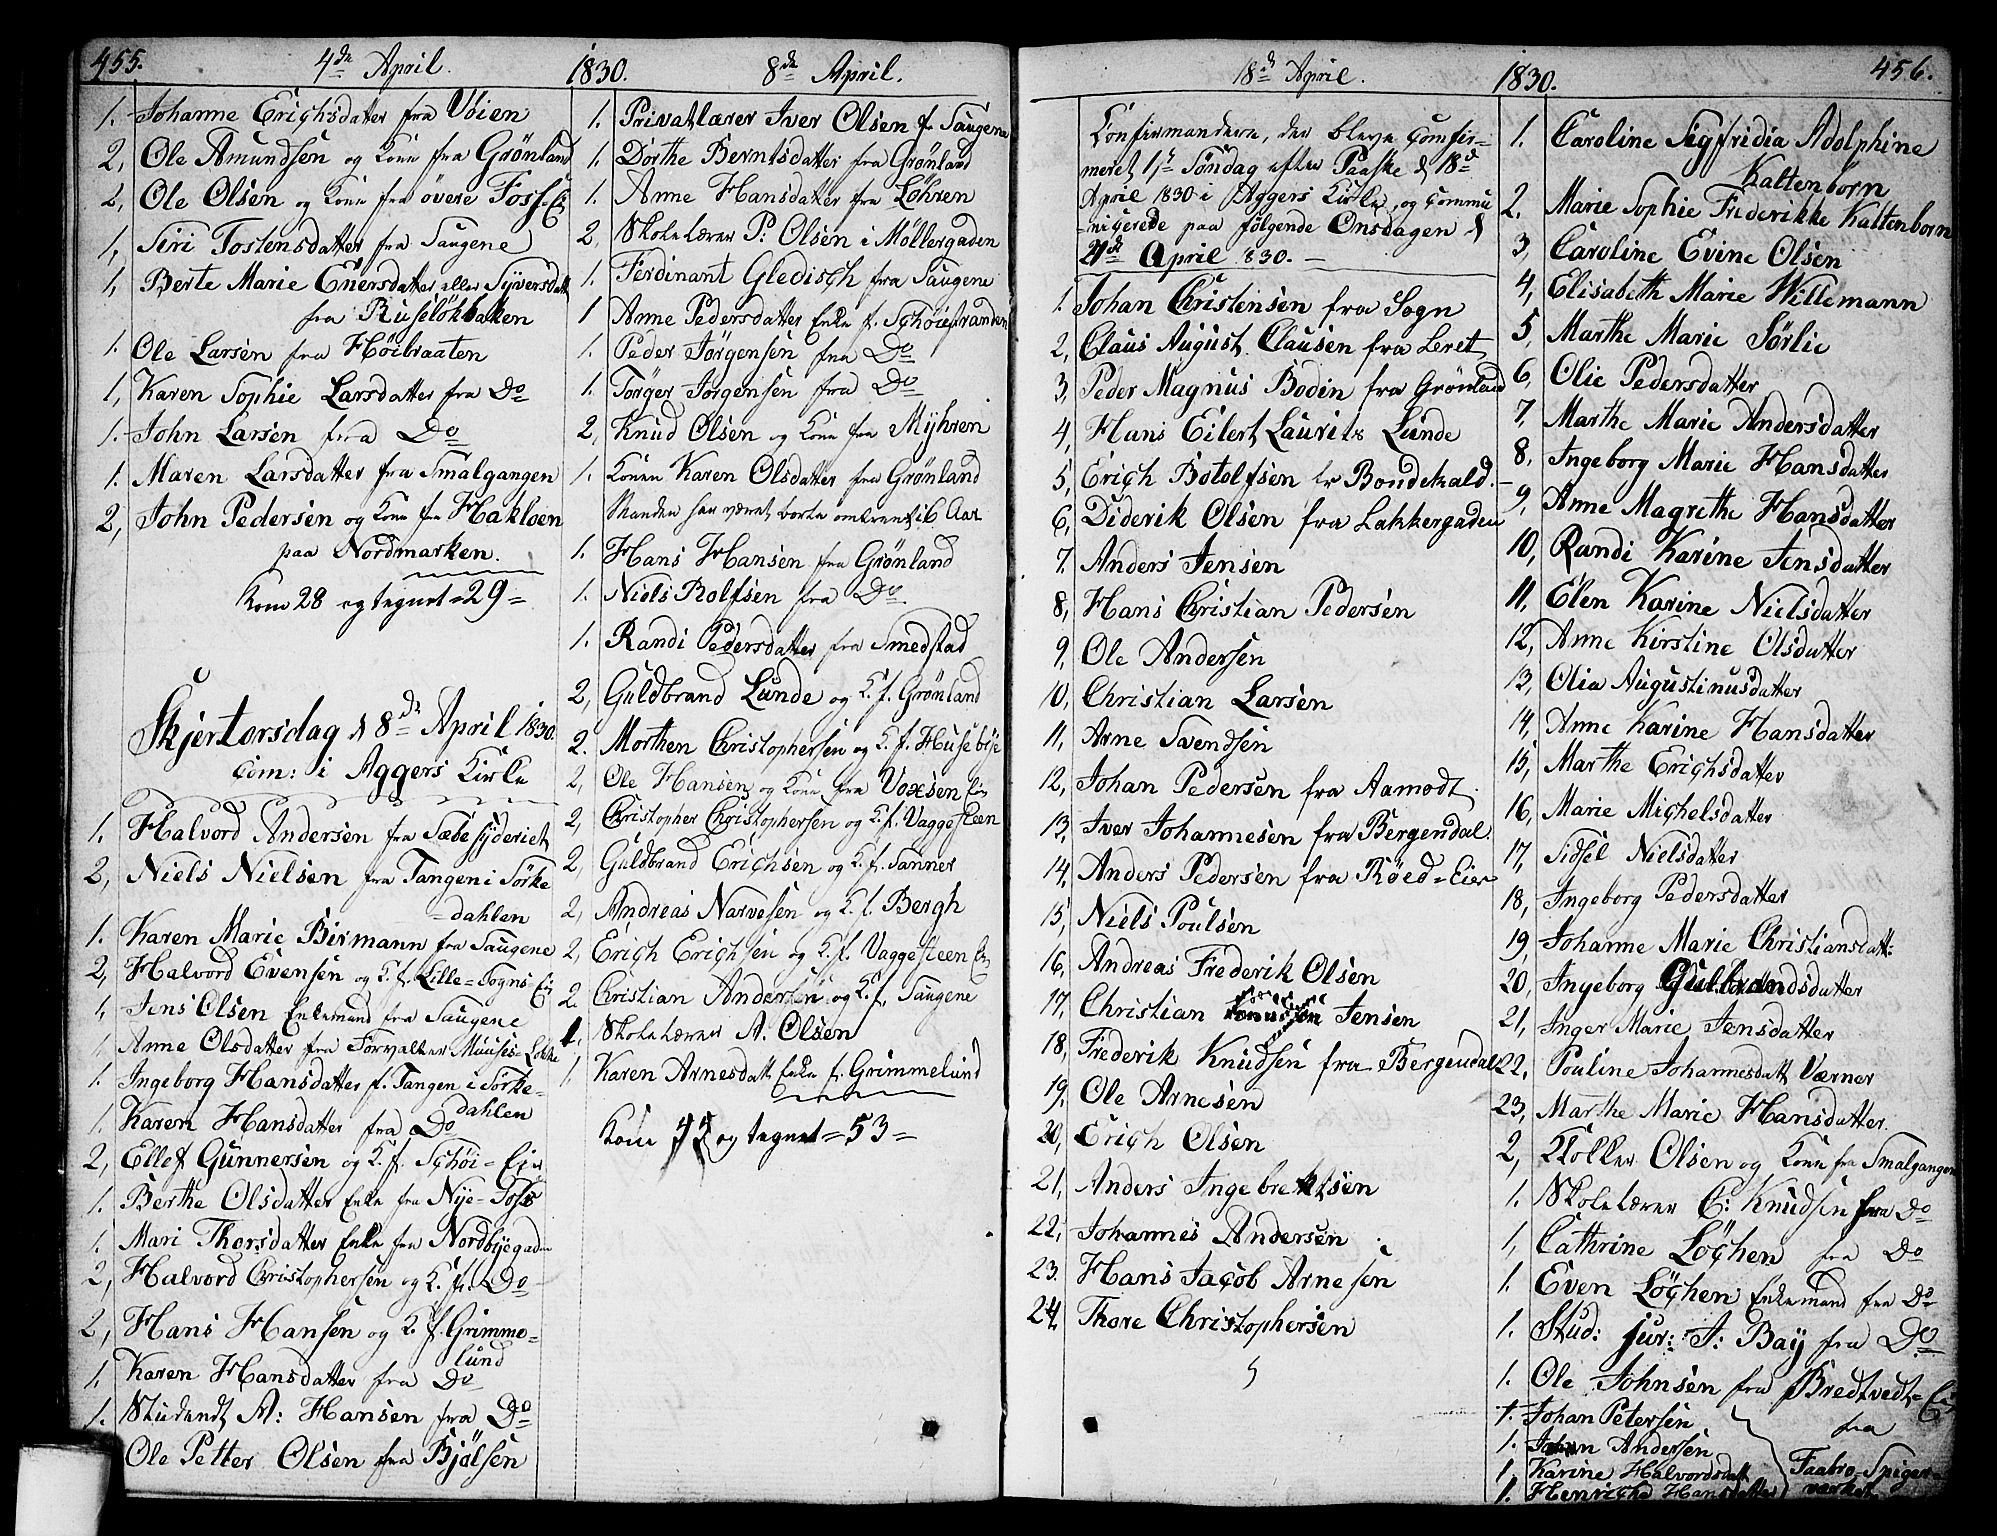 455.
4de April.
1830.
8de April.
1. Johanne Erichsdatter fra Voien
2, Ole Amundsen og Kone fra Grönland
2, Ole Olsen og Kone fra övere Foss-Ei
1, Siri Tostensdatter fra Saugene
1, Berte Marie Enersdatter eller Syversdatt
fra Ruseløkbaken
1. Ole Larsen fra Høibraaten
1, Karen Sophie Larsdatter fra Do
1. John Larsen fra Do
1. Maren Larsdatter fra Smalgangen
2, John Pedersen og Kone fra Hakloen
paa Nordmarken.
Kom 28 og tegnet = 29 =
Skjertorsdag d 8de April 1830.
Com: i Aggers Kirke
1. Halvord Andersen fra Sæbesyderiet
2, Niels Nielsen fra Tangen i Sörke
=dahlen
1. Karen Marie Birmann fra Saugene
2, Halvord Evensen og K. f. Lille=Fogns Ei
1, Jens Olsen Enkemand fra Saugene
1. Anne Olsdatter fra Forvalter Muuses=Løkke
1. Ingeborg Hansdatter f. Tangen i Sörke=
dahlen
1. Karen Hansdatter fra Do
2, Ellef Gunnersen og K. f. Schøi=Eier
1. Berthe Olsdatter Enke fra Nye=Foss
1. Mari Thorsdatter Enke fra Nordbygaden
2, Halvord Christophersen og K. f. Do
2, Hans Hansen og K. f. Grimme=
lund
1. Karen Hansdatter fra Do
1. Student A: Hansen fra Do
Ole Petter Olsen fra Bjølsen
1. Privatlærer Iver Olsen f. Saugene
1. Dorthe Berntsdatter fra Grönland
1. Anne Hansdatter fra Løhren
2, Skolelærer P. Olsen i Møllergaden
1. Ferdinant Gledisch fra Saugene
1 Anne Pedersdatter Enke f. Schøiestranden
1. Peder Jörgensen fra Do
1. Torger Jorgensen fra Do
2, Knud Olsen og Kone fra Myhren
1. Konen Karen Olsdatter fra Grønland
Manden har været borte omtrent 16 Aar
1. Hans Hansen fra Grönland
1. Niels Rolfsen fra Do.
1. Randi Pedersdatter fra Smedstad
2, Guldbrand Lunde og K. f. Grönland
2. Morthen Christophersen og K. f. Husebye
2, Ole Hansen og Kone fra Voxsen Ei
2, Christopher Christophersen og K. f. Vaggesteen
2, Guldbrand Erichsen og K. f. Sanner
2, Andreas Narvesen og K. f. Bergh
2, Erich Erichsen og K. f. Vaggesteen Ei
2. Christian Andersen og K. f. Saugene
1, Skolelærer A. Olsen
1. Karen Arnesdatt Enke f. Grimmelund
Kom og tegnet = 53 =
18de April.
1830.
456.
Konfirmanderne, der bleve Confir=
meret 1ste Søndag efter Paaske d 18de
April 1830 i Aggers Kirke, og Commu
=nicerede paa følgende Onsdagen d
21de April 1830. —
1. Johan Christensen fra Sogn
2, Claus August Clausen fra Leret
3, Peder Magnus Bodin fra Grønland
4, Hans Eilert Laurits Lunde
5, Erich Botolfsen br Bondekald.
6, Diderik Olsen fra Lakkergaden
7. Anders Jensen
8, Hans Christian Pedersen
9, Ole Andersen
10, Christian Larsen
11, Arne Svendsen
12, Johan Pedersen fra Aamodt.
13, Iver Johannesen fra Bergendal.
14, Anders Pedersen fra Røed=Eier
15, Niels Poulsen
16, Andreas Frederik Olsen
17, Christian Jensen
18, Frederik Knudsen fra Bergendal
19, Ole Arnesen
20, Erich Olsen
21, Anders Ingebrektsen
22, Johannes Andersen
23. Hans Jacob Arnesen
24, Thore Christophersen
1. Caroline Sigfridia Adolphine
Kaltenborn
2. Marie Sophie Frederikke Kaltenborn
3, Caroline Evine Olsen
4, Elisabeth Marie Willemann
5, Marthe Marie Sørlie
6, Olie Pedersdatter
7, Marthe Marie Andersdatter
8, Ingeborg Marie Hansdatter
9, Anne Magrethe Hansdatter
10, Randi Karine Jensdatter
11, Elen Karine Nielsdatter
12, Anne Kirstine Olsdatter
13, Olia Augustinusdatter
14, Anne Karine Hansdatter
15, Marthe Erichsdatter
16, Marie Michelsdatter
17, Sidsel Nielsdatter
18, Ingeborg Pedersdatter
19, Johanne Marie Christiansdatt:
20, Ingeborg Gulbrandsdatter
21, Inger Marie Jensdatter
22, Pouline Johannesdatt Værner
23, Marthe Marie Hansdatter.
2, Klokker Olsen og Kone fra Smalgangen
1. Skolelærer C: Knudsen fra Do
1, Cathrine Løchen fra Do
1. Even Løchen Enkemand fra Do
1. Stud: jur: J: Bay fra Do
1. Ole Johnsen fra Bredtvedt=Ei
1. Johan Petersen fra
1. Johan Andersen
1, Karine Halvordsdatt Faabro=Spiger=
1. Henriche Hansdatter værket